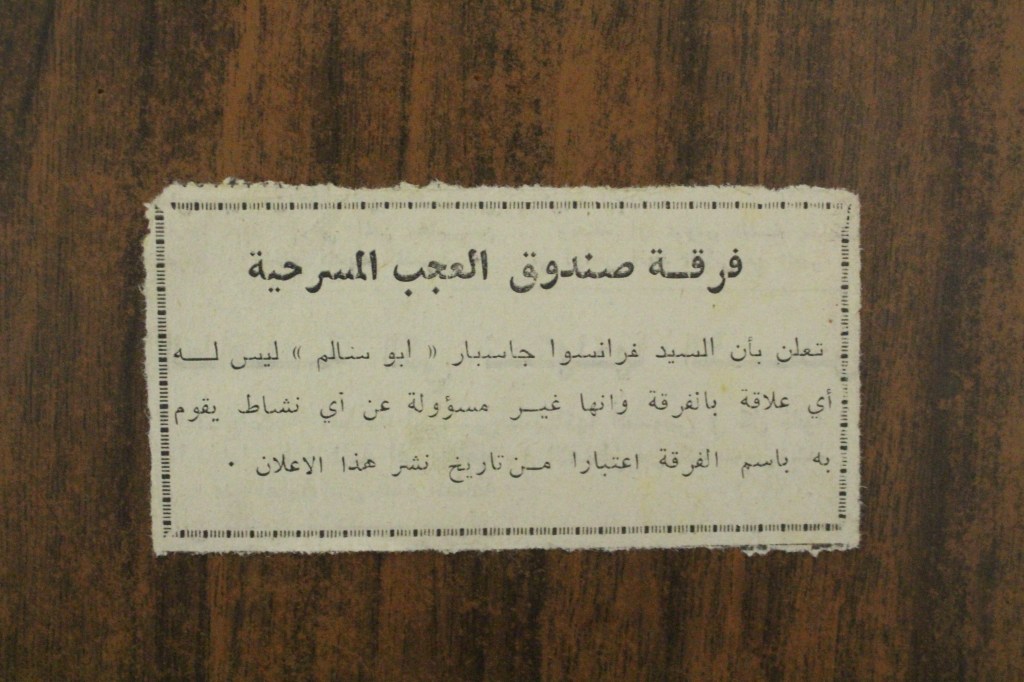 فرقة صندوق العجب المسرحية
تعلن بأن السيد فرانسوا جاسبار « ابو سالم » ليس له
أي علاقة بالفرقة وانها غير مسؤولة عن أي نشاط يقوم
به باسم الفرقة اعتبارا من تاريخ نشر هذا الاعلان ٠